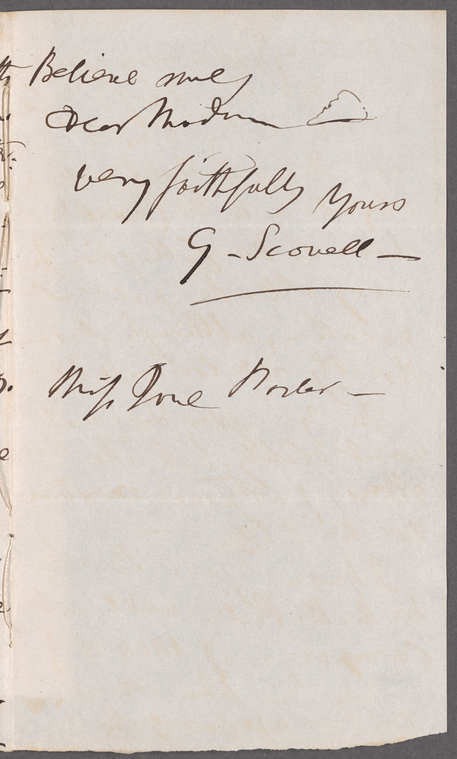 Believe me
Dear Madam
very faithfully yours
G - Scovell -
Miss Jane Porter -